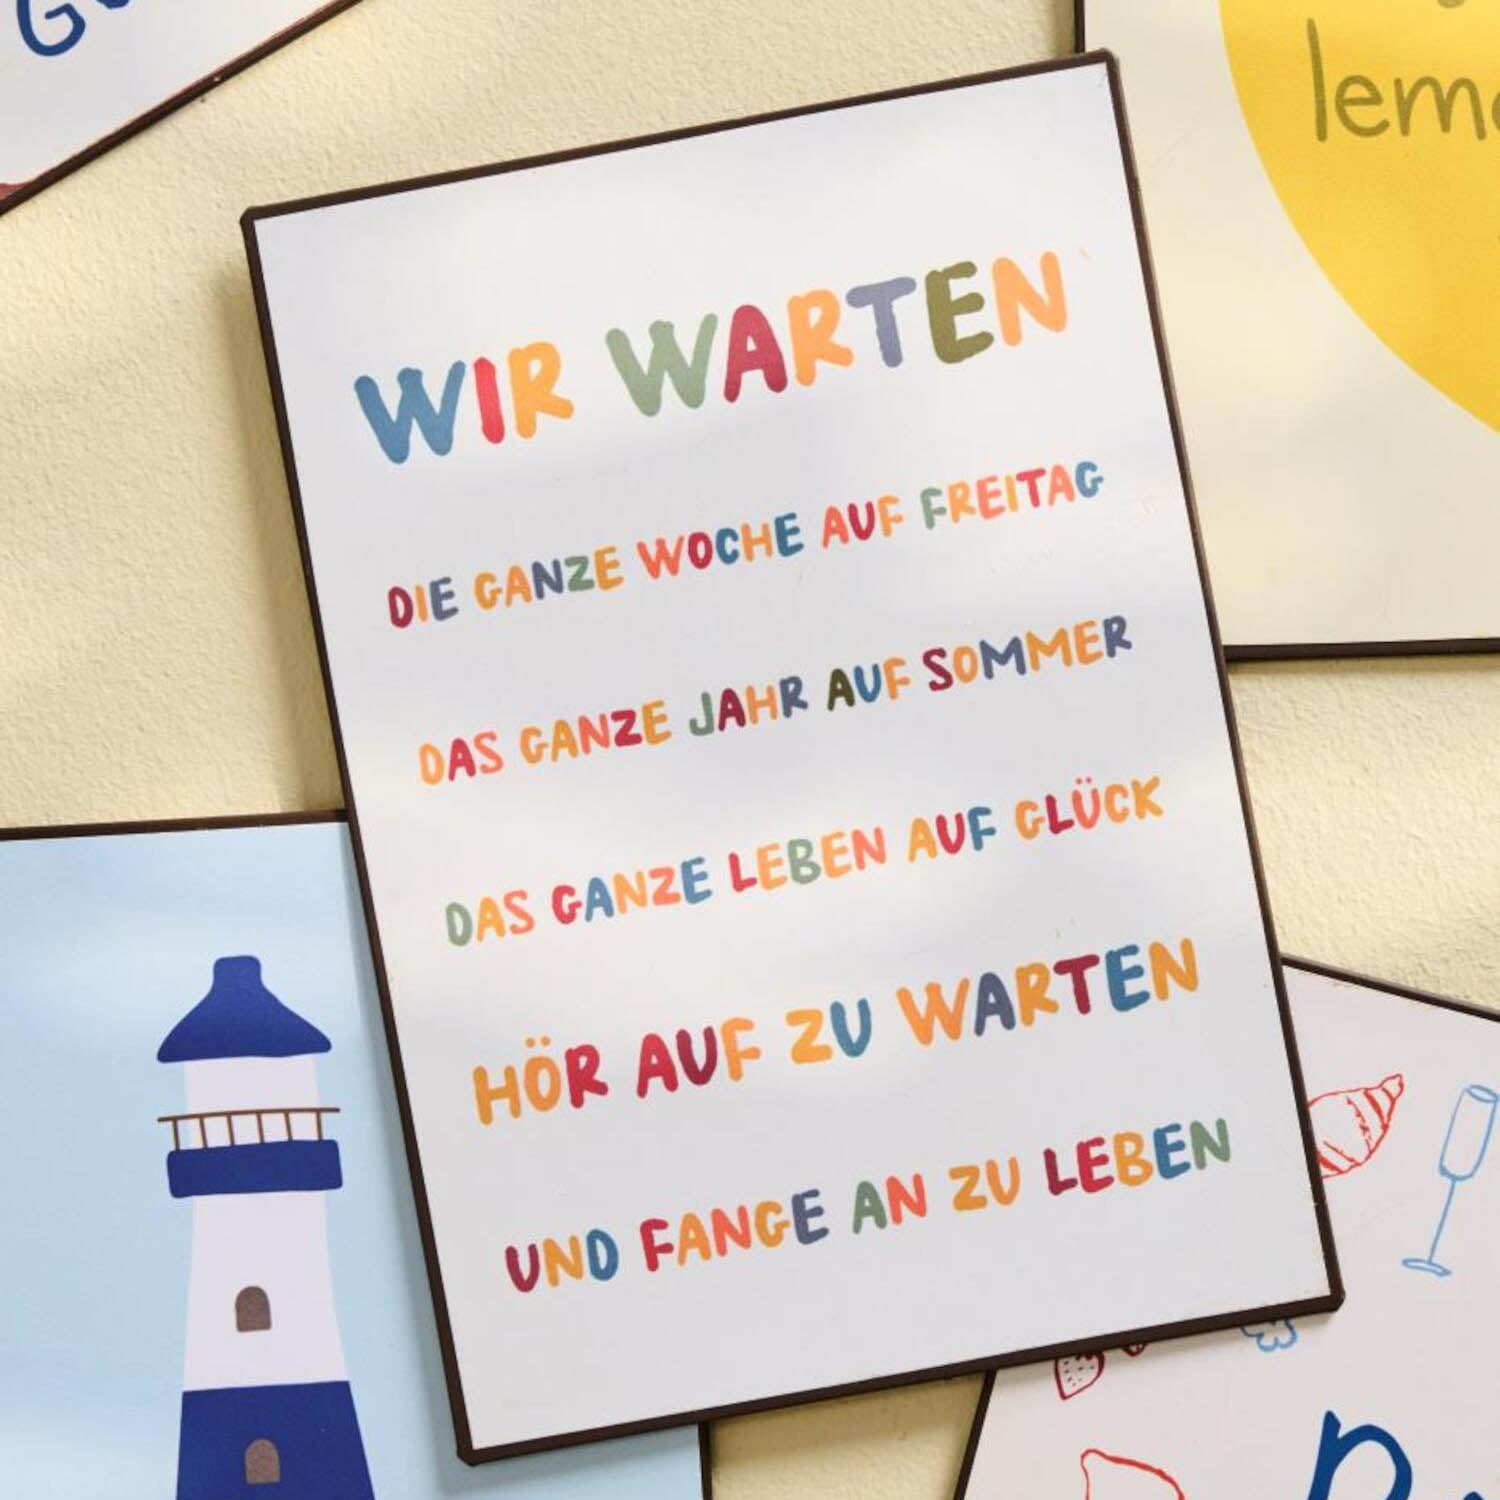 WIR WARTEN
DIE GANZE WOCHE AUF FREITAG
DAS GANZE JAHR AUF SOMMER
DAS GANZE LEBEN AUF GLÜCK
HÖR AUF ZU WARTEN
UND FANGE AN ZU LEBEN